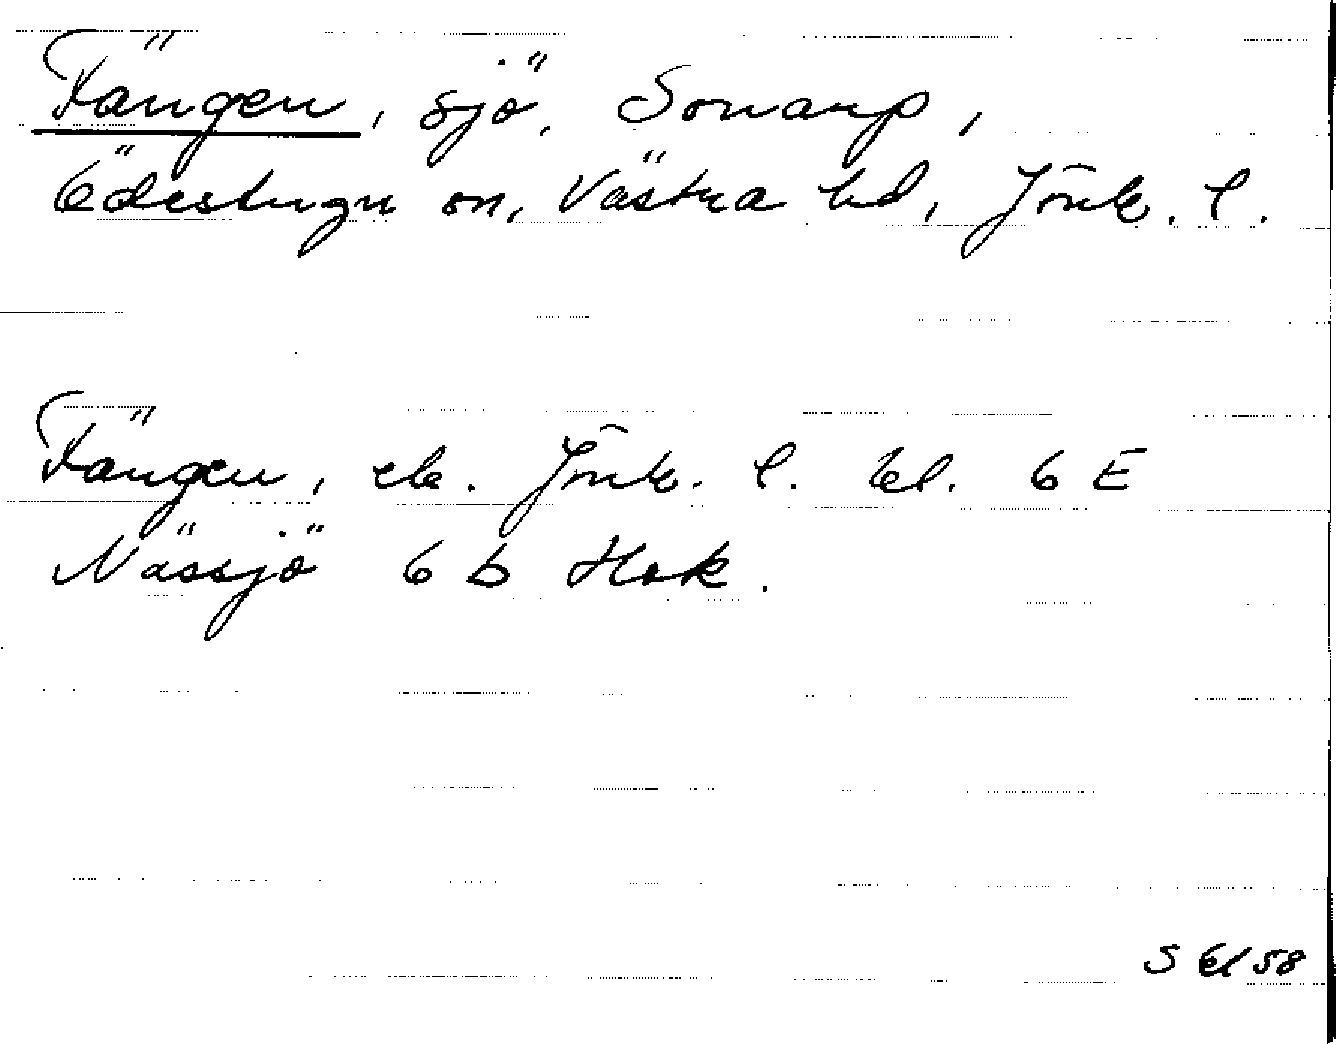 Tängen, sjö, Sonarp,
Ödestugu sn, Västra hd, Jönk. l.
Tängen, ek. Jönk. l. bl. 6 E
Nässjö 6 b Hok.
S El 58